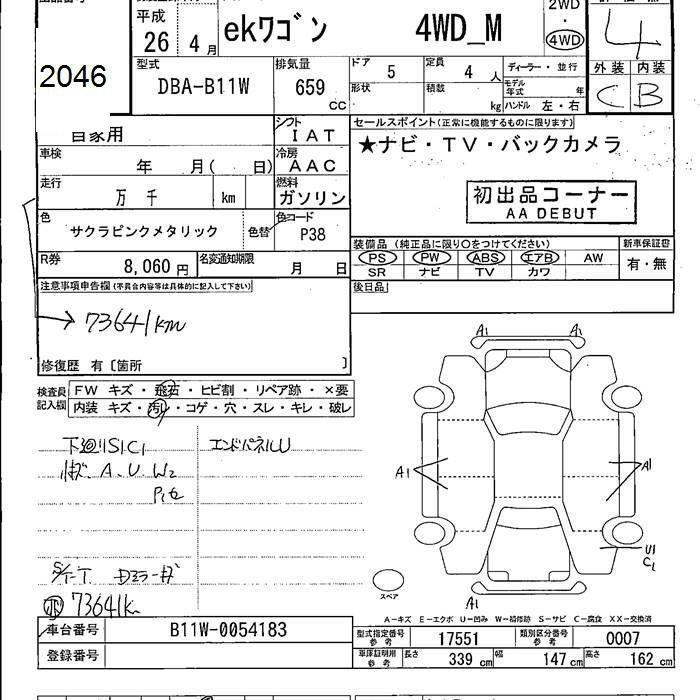 出品番号
平成
26 4月
ekワゴン
4WD_M
2WD
・
4WD
4
2046
型式
DBA-B11W
排気量
659
cc
ドア 5
定員 4 人
ディーラー・並行
形状
積載 kg
モデル年式 年
ハンドル 左・右
外装 内装
C B
自家用
シフト
IAT
セールスポイント(正常に機能するものに限ります)
★ナビ・TV・バックカメラ
車検
年 月( 日)
冷房
AAC
走行
万 千 km
燃料
ガソリン
初出品コーナー
AA DEBUT
色
サクラピンクメタリック
色替
色コード
P38
装備品 (純正品に限り○をつけてください)
新車保証書
PS PW ABS エアB AW
SR ナビ TV カワ
有・無
R券
8,060 円
名変通知期限
月 日
後日品
注意事項申告欄(不具合内容等は具体的に記入して下さい)
→73641km
修復歴 有〔箇所 〕
検査員記入欄
FW キズ・飛石・ヒビ割・リペア跡・×要
内装 キズ・汚れ・コゲ・穴・スレ・キレ・破レ
下廻りS1C1
エンドパネルU
小キズ A.U W2
A1
A1
A1
A1
U1
C1
スペア
A1
73641km
A-キズ E-エクボ U-凹み W-補修跡 S-サビ C-腐食 XX-交換済
車台番号
B11W-0054183
登録番号
型式指定番号 参考
17551
類別区分番号 参考
0007
車庫証明用 参考
長さ 339 cm
幅 147 cm
高さ 162 cm